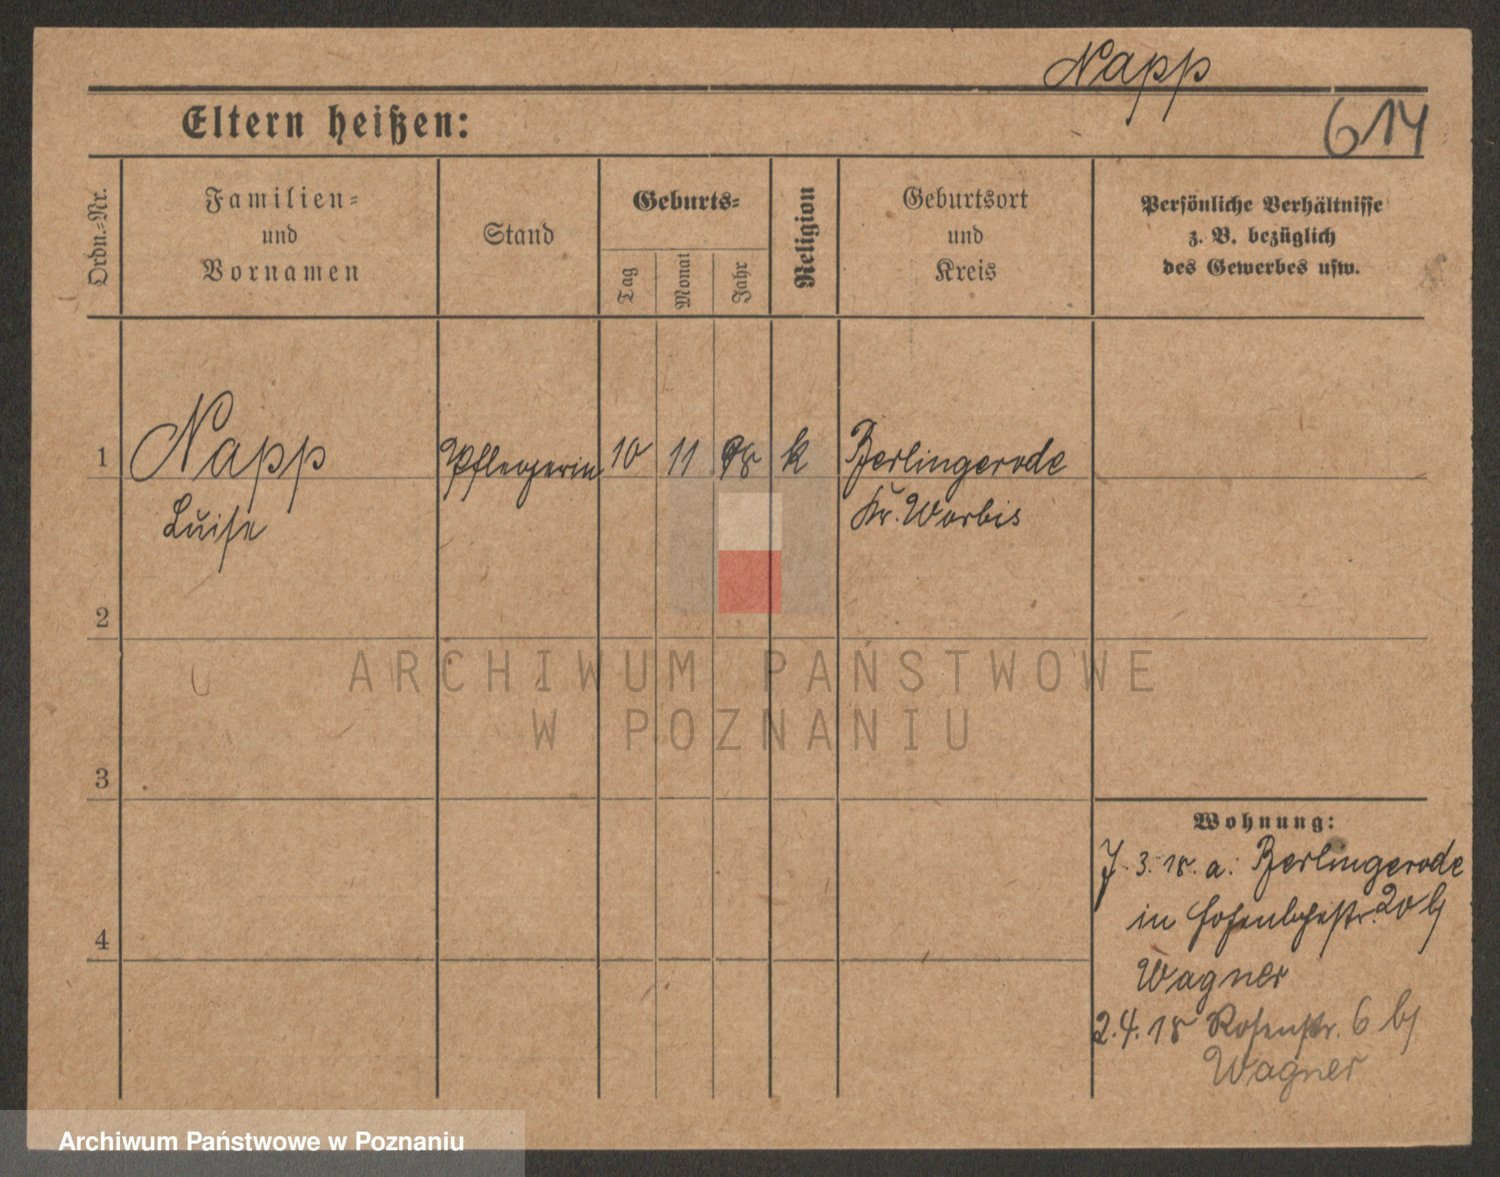 Napp
Eltern heißen:
614
Ordn.-Nr.
Familien-
und
Vornamen
Stand
Geburts-
Tag
Monat
Jahr
Religion
Geburtsort
und
Kreis
Persönliche Verhältnisse
z. B. bezüglich
des Gewerbes usw.
1 Napp Pflegerin 10 11 98 k Berlingerode
Luise Kr. Worbis
2
ARCHIWUM PAŃSTWOWE
W POZNANIU
3
Wohnung:
3. 18. a. Berlingerode
in 20 b/
4
Wagner
2. 4. 18 Rosenstr. 6 b/
Wagner
Archiwum Państwowe w Poznaniu